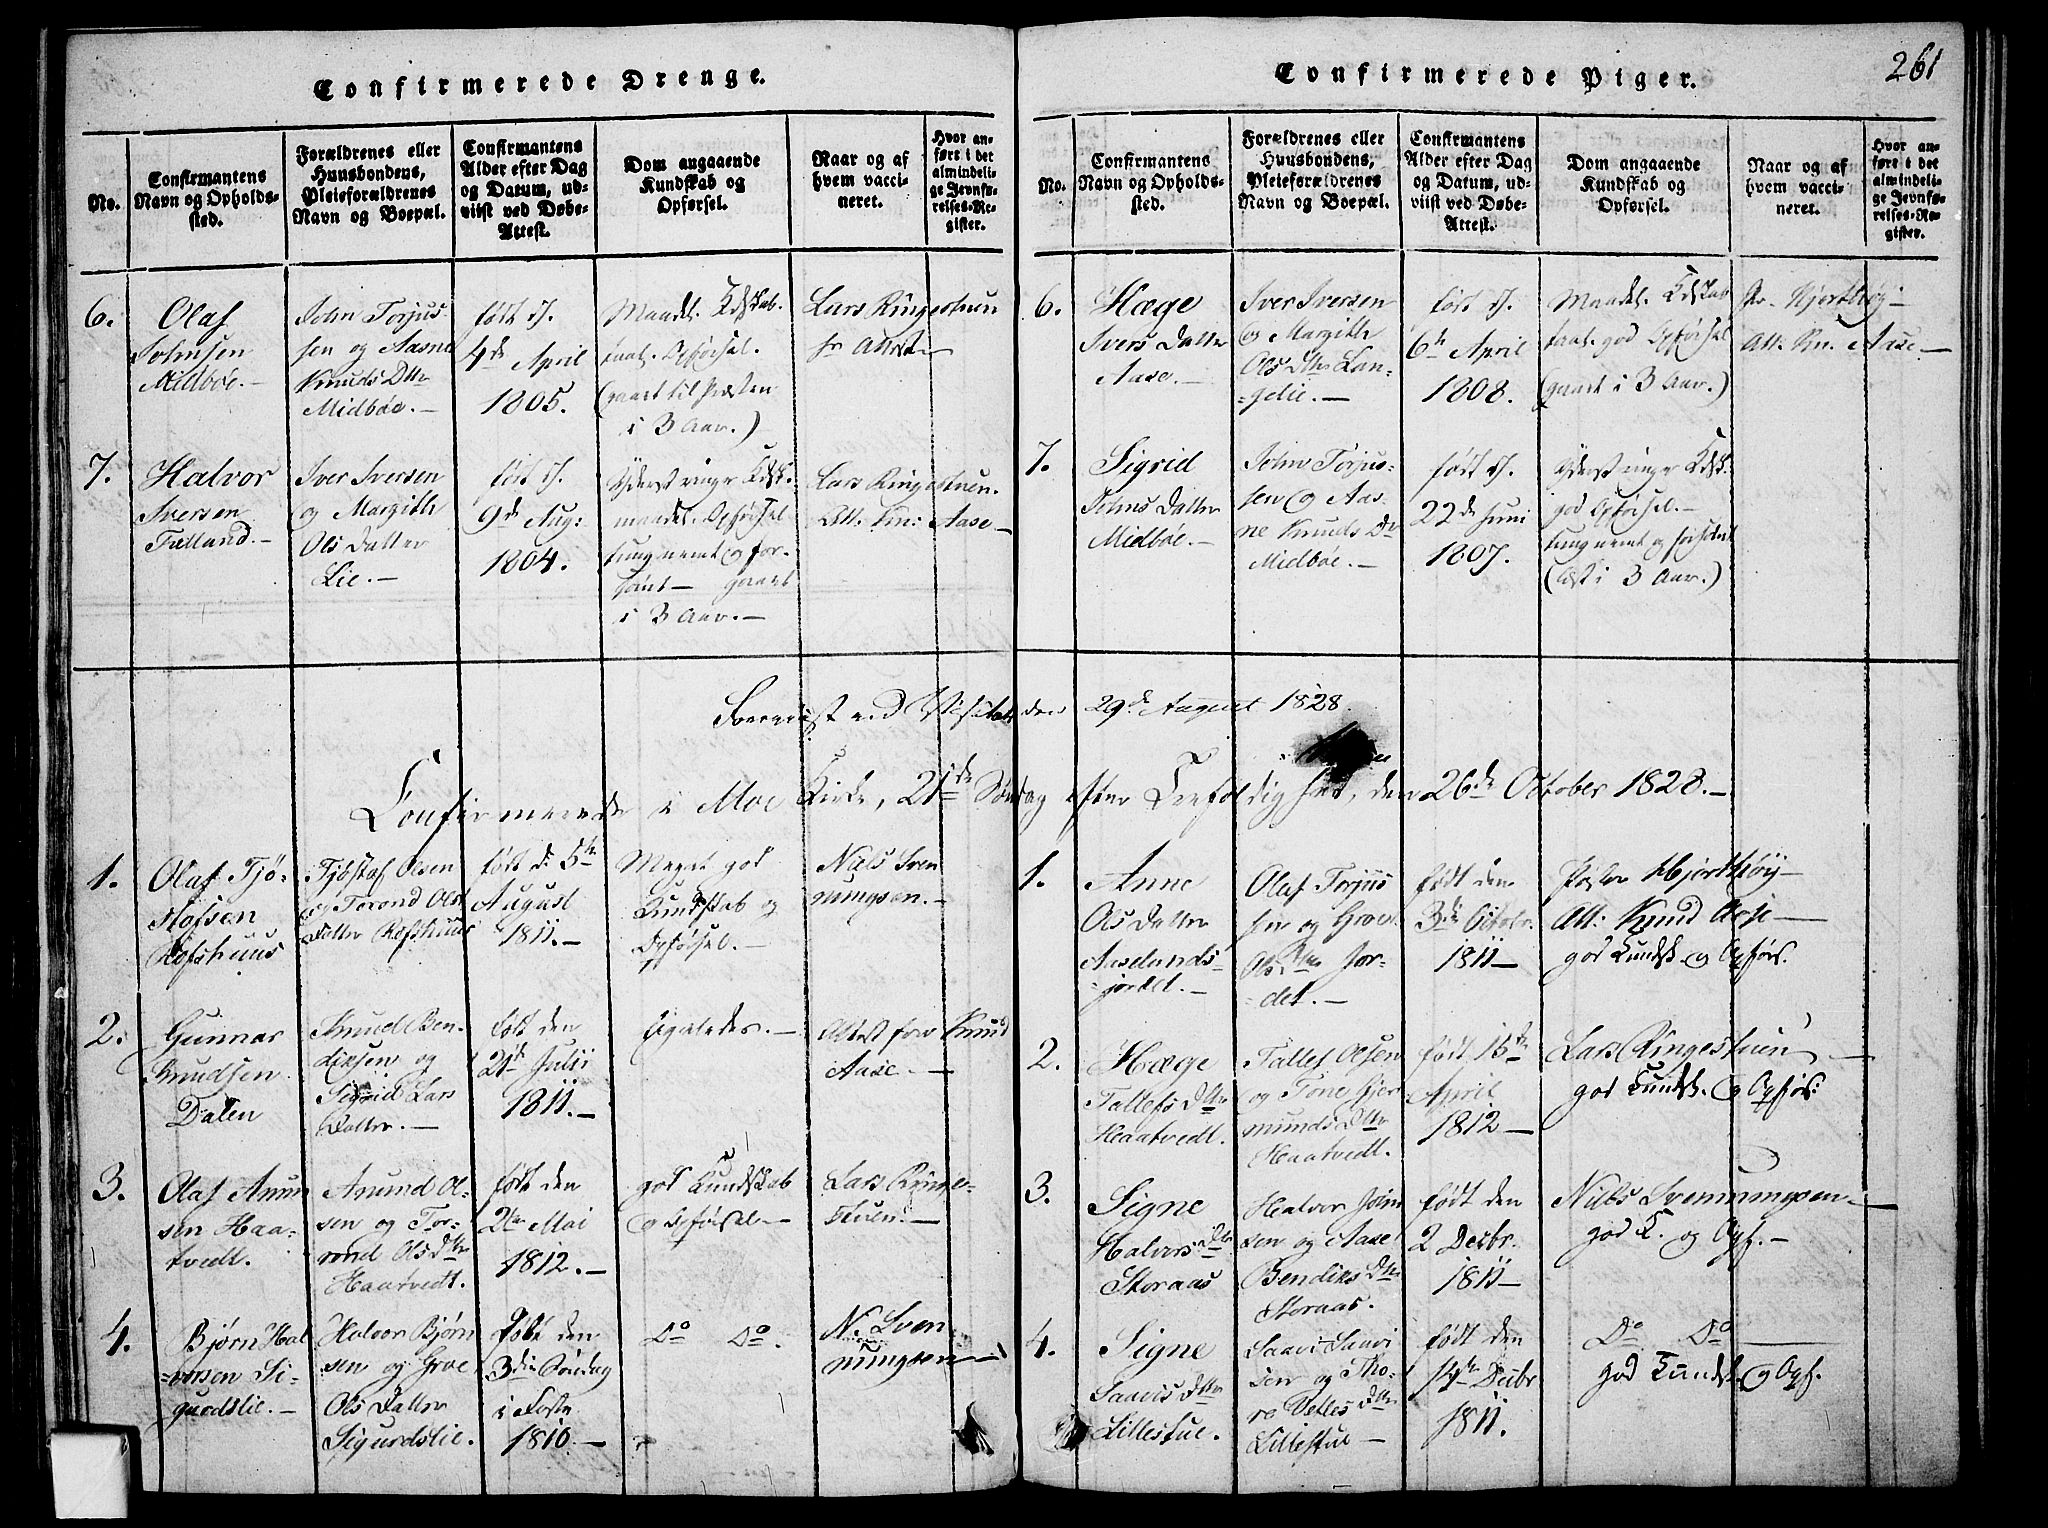 Confirmerede Drenge.
No.
Confirmantens
Navn og Opholds-
sted.
Forældrenes eller
Huusbondens,
Pleieforældrenes
Navn og Boepæl.
Confirmantens
Alder efter Dag
og Datum, ud-
viist ved Døbe-
Attest.
Dom angaaende
Kundskab og
Opførsel.
Naar og af
hvem vacci-
neret.
Hvor an-
ført i det
almindeli-
ge Jevnfø-
relses-Re-
gister.
6.
Olaf
Johnsen
Midbøe.-
John Torjus-
sen og Aasne
Knuds Dttr
Midbøe.-
født d.
4de April
1805.
Maadel. Kdskab.
taal. Opførsel.
(gaaet til Præsten
i 3 Aar.)
Lars Ringestuen
Attest
7.
Halvor
Iversen
Felland.-
Iver Iversen
og Margith
Ols Datter
Lie.-
født d.
9de Aug:
1804.
Yderst ringe Kdsk.
maadel. Opførsel
tungnemt og for-
sømt- gaaet
i 3 Aar.-
Lars Ringestuen.
Att. Kn: Aase-
Confirmerede i Moe Kirke, 21de Søndag efter Trefoldighed, den 26de October 1828.-
1.
Olaf Tjø-
stofsen
Rofshuus
Tjøstof Olsen
og Torond Ols
Datter Rofshuus
født d. 5te
August
1811.-
Meget god
Kundskab og
Opførsel.-
Niels Sven
nungsen.-
2.
Gunnar
Knudsen
Dalen
Knud Ben-
dixsen og
Sigrid Lars
Datter.-
født den
21de Julii
1811.-
Ligeledes.-
Attest fra Knud
Aase.-
3.
Olaf Anun
sen Haa-
tvedt.
Anund Ol-
sen og To-
rond Ols Dttr
Haatvedt.
født den
2den Mai
1812.-
god Kundskab
og Opførsel-
Lars Ringe-
stuen.-
4.
Bjørn Hal
-vorsen Si-
gurdslie.-
Halvor Bjørn
sen og Groe
Ols Datter
Sigurdslie.
født den
3die Søndag
i Faste
1810.-
Do Do.
N. Sven
nungsen-
261
Confirmerede Piger.
No.
Confirmantens
Navn og Opholds-
sted.
Forældrenes eller
Huusbondens,
Pleieforældrenes
Navn og Boepæl.
Confirmantens
Alder efter Dag
og Datum, ud-
viist ved Døbe-
Attest.
Dom angaaende
Kundskab og
Opførsel.
Naar og af
hvem vacci-
neret.
Hvor an-
ført i det
almindeli-
ge Jevnfø-
relses-Re-
gister.
6.
Hæge
Ivers Datter
Aase.-
Iver Iversen
og Margith
Ols Dttr Lan-
=gelie.-
født d.
6te April
1808.
Maadel. Kdskab
taal. god Opførsel
(gaaet i 3 Aar.)
Pr. Hjorthøy-
Att. Kn. Aase-
7.
Sigrid
Johns Datter
Midbøe.-
John Torjus-
sen og Aas-
ne Knuds Dr
Midbøe.-
født d.
22de Juni
1807.
yderst ringe Kdsk.
god Opførsel.-
tungnemt og forsømt
(læst i 3 Aar.)
den 29de August 1828.
1.
Anne
Ols Datter
Aaselands-
=jordet.-
Olaf Torjus
sen og Groe
Ols Dttr Jor-
=det.-
født den
3die Octobr.
1811-
Præsten Hjorthøy-
Att: Knud Aase-
god Kundsk. og Opførs.
2.
Hæge
Tallefs Dttr
Haatvedt.
Tallef Olsen
og Tone Gjer
munds Dttr
Haatvedt.
født 15te
April
1812-
Lars Ringestuen-
god Kundsk. og Opførs:
3.
Signe
Halvors Dttr
Storaas
Halvor John
sen og Aase
Bendiks Dttr
Storaas.
født den
2 Decbr.
1811-
Niels Svennungsen-
god K. og Opf.-
4.
Signe
Saavis Dttr
Lillestue.
Saavi Saavi
sen og Tho-
re Vetles Dttr
Lillestue-
født den
14te Decbr
1811.
Do Do
god Kundsk. og Opf.